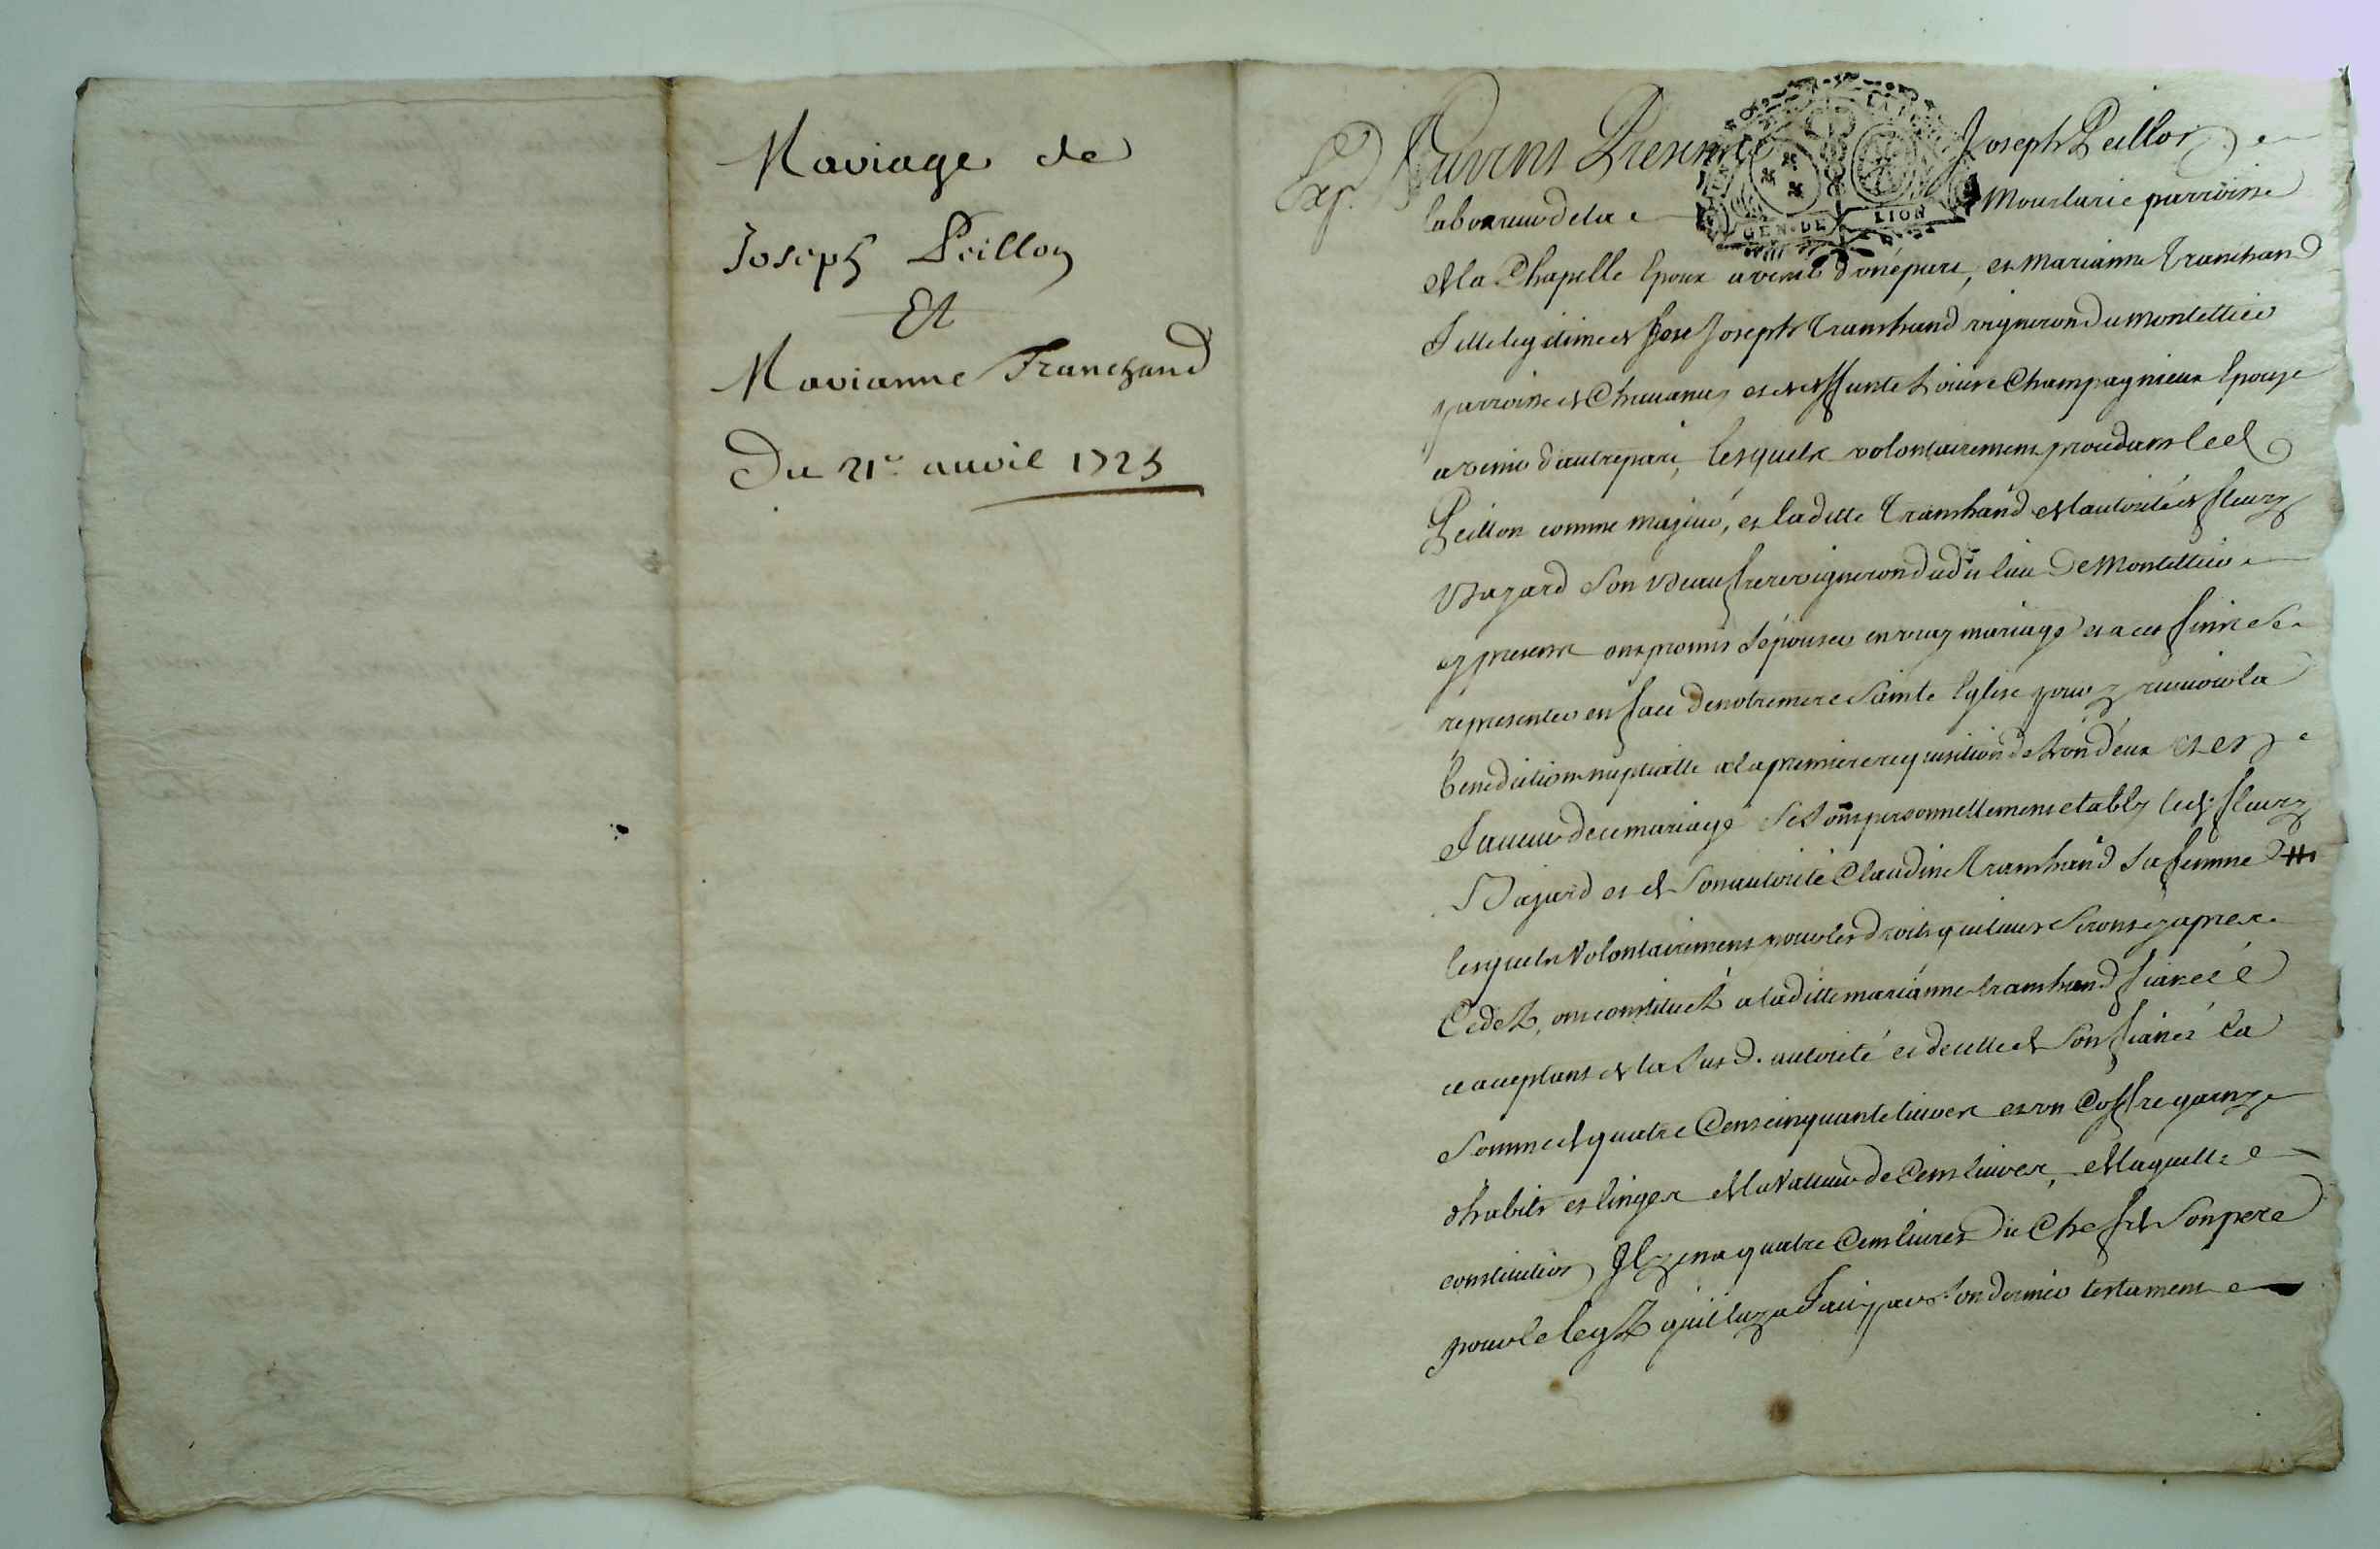 Mariage de
Joseph Peillon
Et
Marianne Tranchand
Du 21e. avril 1725
Exp.
Furent Presents Joseph Peillon
laboureur de la Mourlarie parroisse
de la Chapelle Epoux avenir d'une part, et marianne Tranchand
fille legitime de feu Joseph Tranchand vigneron du montellier
parroisse de Chavanay et de deffunte Loüise Champagnieux Epouze
avenir d'autre part, lesquels volontairement procedants led
Peillon comme majeur, et laditte Tranchand de l'autorité de fleury
Bajard son beaufrere vigneron dudit lieu de Montellier
cy present ont promis s'épouser en vray mariage et a cet fin se
representer en face de notre mere Sainte Eglise pour y recevoir la
benediction nuptialle a la premiere requisition de l'un d'eux et en
faveur de ce mariage se sont personnellement etably led. fleury
Bajard et de son autorité Claudine Tranchand sa femme
lesquels volontairement pour les droits qui leur seront cy apres
Cedez, ont constitué a laditte marianne tranchand fiancéé
acceptant de la susd. autorité et de celle de son fiancé la
somme de quatre Cent cinquante livres et un Coffre garny
d'habits et linges de la valleur de Cent livres, de laquelle
constitution Il y en a quatre Cent livres du Chef de son pere
pour le legs qu'il luy a fait par son dernier testament
GEN. DE LION